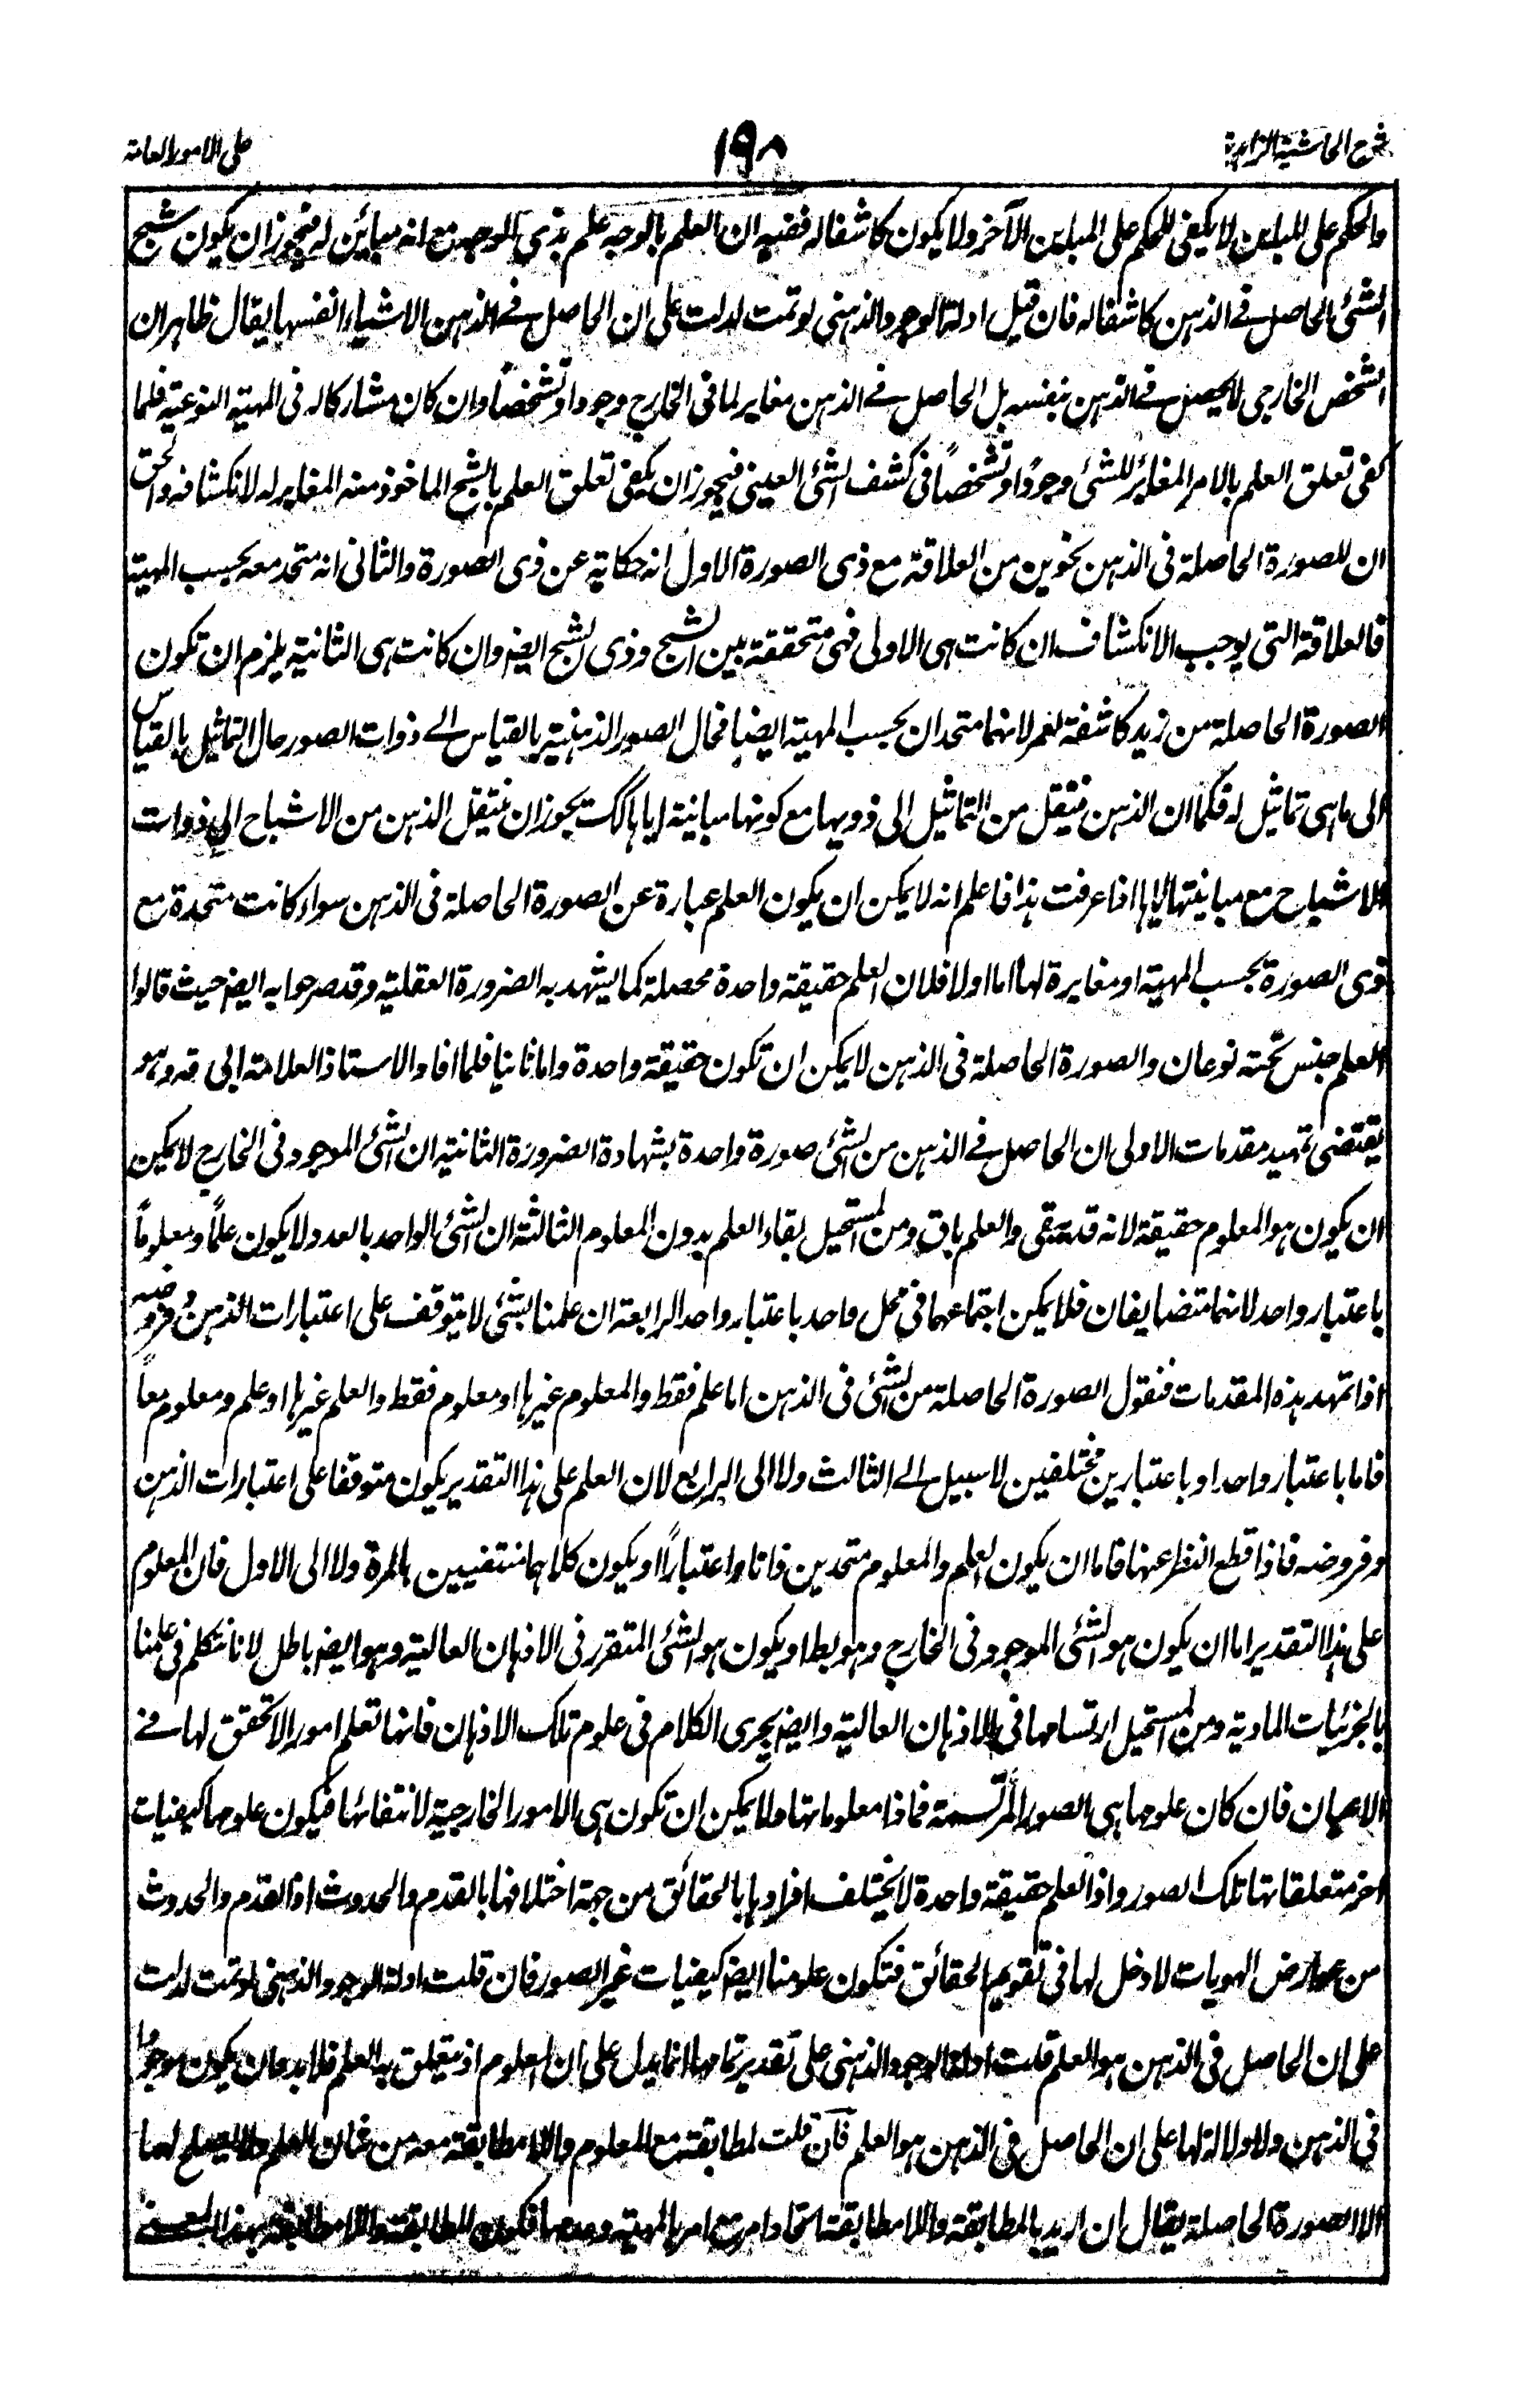 شرح الحاشية الزاهدية
١٩٨
على الامور العامة
والحكم على المباين لا يكفى للحكم على المباين الآخر ولا يكون كاشفا له ففيه ان العلم بالوجه علم بذى الوجه مع انه مبائن له فيجوز ان يكون شبح
الشئ الحاصل فى الذهن كاشفا له فان قيل ادلة الوجود الذهنى لو تمت لدلت على ان الحاصل فى الذهن الاشياء انفسها يقال ظاهر ان
الشخص الخارجى لا يحصل فى الذهن بنفسه بل الحاصل فى الذهن مغاير لما فى الخارج وجودا وتشخصاً وان كان مشاركا له فى المهية النوعية فلما
كفى تعلق العلم بالامر المغائر للشئ وجودًا وتشخصاً فى كشف الشئ العينى فيجوز ان يكفى تعلق العلم بالشبح الماخوذ منه المغاير له لانكشافه والحق
ان للصورة الحاصلة فى الذهن نحوين من العلاقة مع ذى الصورة الاول انه حكاية عن ذى الصورة والثانى انه متحد معه بحسب المهية
فالعلاقة التى يوجب الانكشاف ان كانت هى الاولى فهى متحققة بين الشبح وذى الشبح ايضه وان كانت هى الثانية يلزم ان تكون
الصورة الحاصلة من زيد كاشفة لعمر لانهما متحدان بحسب المهية ايضا فحال الصور الذهنية بالقياس الى ذوات الصور حال التماثيل بالقياس
الى ماهى تماثيل له فكما ان الذهن ينتقل من التماثيل الى ذويها مع كونها مباينة اياها كك يجوز ان ينتقل الذهن من الاشباح الى ذوات
الاشباح مع مباينتها اياها اذا عرفت هذا فاعلم انه لا يمكن ان يكون العلم عبارة عن الصورة الحاصلة فى الذهن سواء كانت متحدة مع
ذى الصورة بحسب المهية او مغايرة لها اما اولا فلان العلم حقيقة واحدة محصلة كما يشهد به الضرورة العقلية وقد صرحوا به ايضه حيث قالوا
العلم جنس تحته نوعان والصورة الحاصلة فى الذهن لا يمكن ان تكون حقيقة واحدة واما ثانيا فلما افاد الاستاذ العلامة ابى قه وهو
يقتضى تمهيد مقدمات الاولى ان الحاصل فى الذهن من الشئ صورة واحدة بشهادة الضرورة الثانية ان الشئ الموجود فى الخارج لا يمكن
ان يكون هو المعلوم حقيقة لانه قد ينتفى والعلم باق ومن المستحيل بقاء العلم بدون المعلوم الثالثة ان الشئ الواحد بالعدد لا يكون علمًا ومعلومًا
باعتبار واحد لانهما متضايفان فلا يمكن اجتماعهما فى محل واحد باعتبار واحد الرابعة ان علمنا بشئ لا يتوقف على اعتبارات الذهن وفروضه
اذا تمهد هذه المقدمات فنقول الصورة الحاصلة من الشئ فى الذهن اما علم فقط والمعلوم غيرها او معلوم فقط والعلم غيرها او علم ومعلوم معاً
فاما باعتبار واحد او باعتبارين مختلفين لا سبيل الى الثالث ولا الى الرابع لان العلم على هذا التقدير يكون متوقفا على اعتبارات الذهن
وفروضه فاذا قطع النظر عنها فاما ان يكون العلم والمعلوم متحدين ذاتا واعتباراً او يكون كلاهما منتفيين بالمرة ولا الى الاول فان المعلوم
على هذا التقدير اما ان يكون هو الشئ الموجود فى الخارج وهو بط او يكون هو الشئ المتقرر فى الاذهان العالية وهو ايضه باطل لانا نتكلم فى علمنا
بالجزئيات المادية ومن المستحيل ارتسامها فى الاذهان العالية وايضه يجرى الكلام فى علوم تلك الاذهان فانها تعلم امورا لا تحقق لها فى
الاعيان فان كان علومها هى الصور المرتسمة فماذا معلوماتها ولا يمكن ان تكون هى الامور الخارجية لانتفائها فيكون علومها كيفيات
اخر متعلقاتها تلك الصور واذا العلم حقيقة واحدة لا يختلف افرادها بالحقائق من جهة اختلافها بالقدم والحدوث اذ القدم والحدوث
من عوارض الهويات لا دخل لها فى تقويم الحقائق فتكون علومنا ايضه كيفيات غير الصور فان قلت ادلة الوجود الذهنى لو تمت لدلت
على ان الحاصل فى الذهن هو العلم قلت ادلة الوجود الذهنى على تقدير تمامها انما يدل على ان المعلوم اذ يتعلق به العلم فلا بد وان يكون موجودًا
فى الذهن ولا دلالة لها على ان الحاصل فى الذهن هو العلم فان قلت لمطابقة مع المعلوم واللا مطابقة معه من شان العلم ولا يصلح لهما
الا الصورة الحاصلة يقال ان اريد بالمطابقة واللا مطابقة اتحاد امر مع امر بالمهية وعدمه فكون المطابقة واللا مطابقة بهذا المعنى